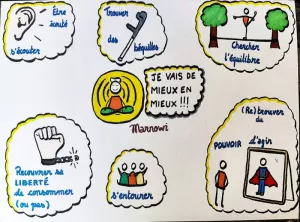 Être
écouté
s'écouter
Trouver
des
béquilles
Chercher
l'équilibre
JE VAIS DE
MIEUX EN
MIEUX !!!
Marnowi
Recouvrer sa
LIBERTÉ
de consommer
(ou pas)
s'entourer
(Re)trouver du
POUVOIR d'agir